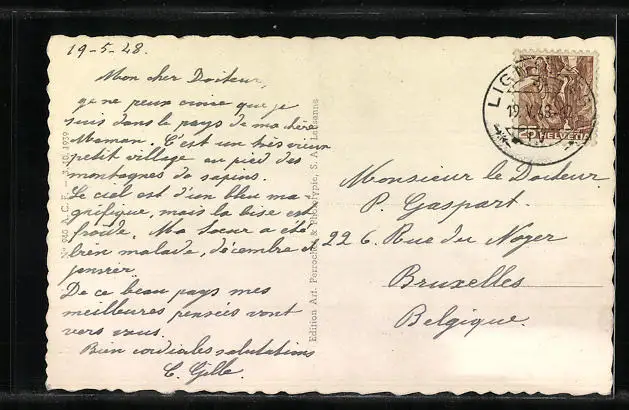 19-5-48.
Mon cher Docteur,
je ne peux croire que je
suis dans le pays de ma chère
Maman. C'est un très vieux
petit village au pied des
montagnes de sapins.
Le ciel est d'un bleu ma-
gnifique, mais la bise est
froide. Ma soeur a été
bien malade, décembre et
janvier.
De ce beau pays mes
meilleures pensées vont
vers vous.
Bien cordiales salutations
C. Gille.
No 945 A. C. F. — 3. 10. 1939
Edition Art. Perrochet & Phototypie, S. A. Lausanne
LIGN
19. V. 48
HELVETIA
Monsieur le Docteur
P. Gaspart.
226. Rue du Noyer
Bruxelles
Belgique.